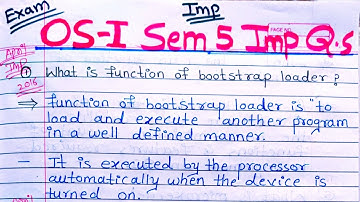 Exam
Imp
OS-I Sem 5 Imp Q.s
April
IMP
2016
① What is function of bootstrap loader?
⇒ function of bootstrap loader is "to
load and execute another program
in a well defined manner.
— It is executed by the processor
automatically when the device is
turned on.